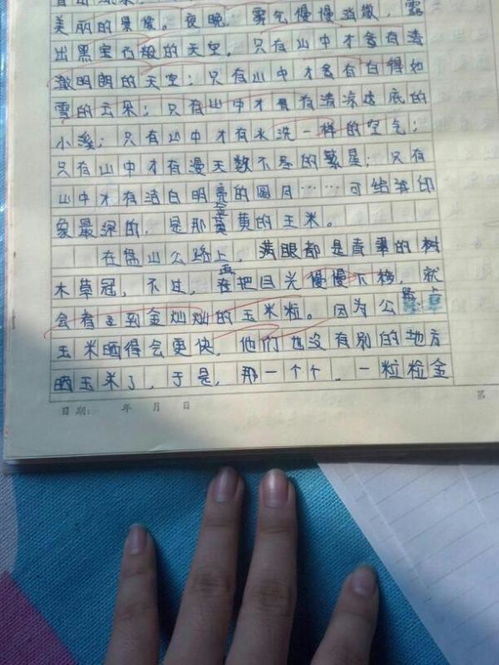 美丽的景像。夜晚，雾气慢慢消散，露
出黑宝石般的天空。只有山中才会有清
澈明朗的天空；只有山中才会有白得如
雪的云朵；只有山中才有清凉透底的
小溪；只有山中才有水洗一样的空气；
只有山中才有漫天数不尽的繁星；只有
山中才有洁白明亮的圆月……可给我印
象最深的，是那金黄的玉米。
在盘山公路上，满眼都是青翠的树
木草冠，不过，再把目光慢慢下移，就
会看到金灿灿的玉米粒。因为公路上
玉米晒得会更快，他们也没有别的地方
晒玉米了，于是，那一个个、一粒粒金
日期： 年 月 日
第